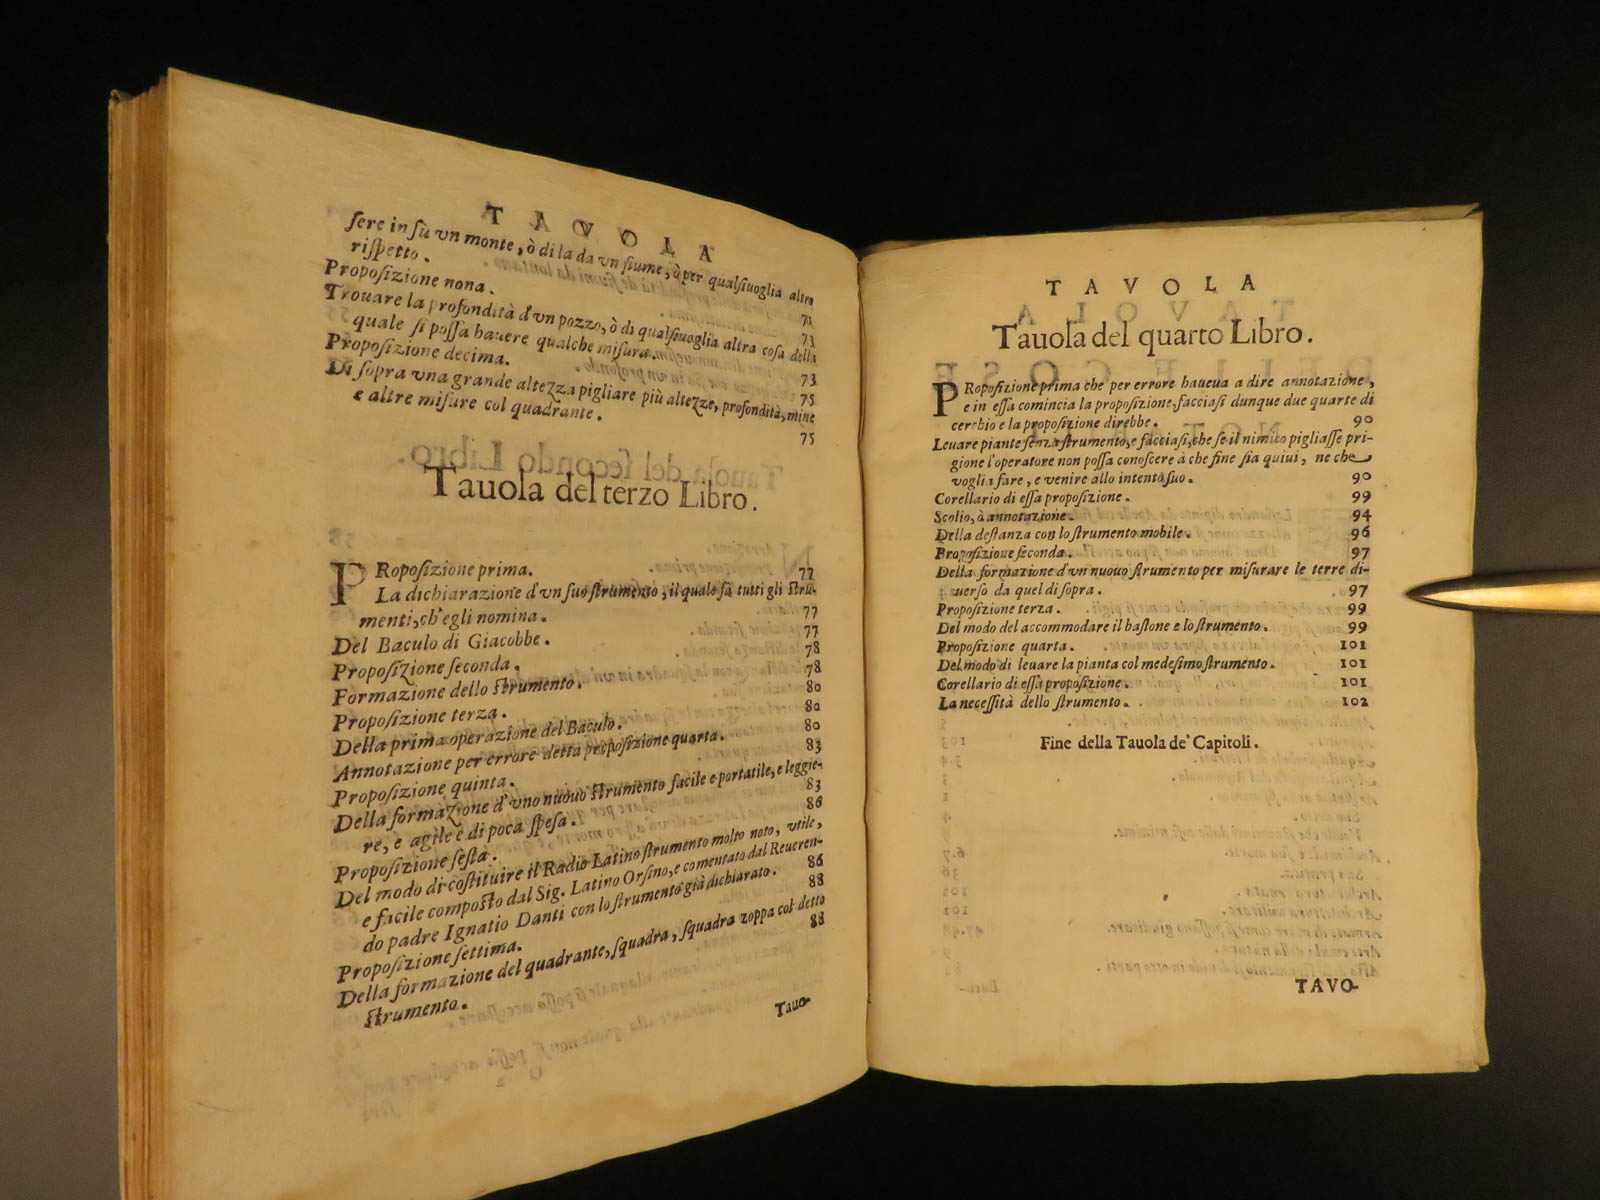 TAVOLA
sere in sù vn monte, ò di la da vn fiume, ò per qualsiuoglia altro
rispetto. 71
Proposizione nona. 73
Trouare la profondità d'vn pozzo, ò di qualsiuoglia altra cosa della
quale si possa hauere qualche misura. 73
Proposizione decima. 75
Di sopra vna grande altezza pigliare più altezze, profondità, mine
e altre misure col quadrante. 75
Tauola del terzo Libro.
PRoposizione prima. 77
La dichiarazione d'vn suo strumento, il quale fà tutti gli stru-
menti, ch'egli nomina. 77
Del Baculo di Giacobbe. 77
Proposizione seconda. 78
Formazione dello strumento. 78
Proposizione terza. 80
Della prima operazione del Baculo. 80
Annotazione per errore detta proposizione quarta. 80
Proposizione quinta. 83
Della formazione d'vno nuouo strumento facile e portatile, e leggie-
re, e agile e di poca spesa. 83
Proposizione sesta. 86
Del modo di costituire il Radio Latino strumento molto noto, vtile,
e facile composto dal Sig. Latino Orsino, e comentato dal Reueren-
do padre Ignatio Danti con lo strumento già dichiarato. 86
Proposizione settima. 88
Della formazione del quadrante, squadra, squadra zoppa col detto
strumento. 88
Tauo-
TAVOLA
Tauola del quarto Libro.
PRoposizione prima che per errore haueua a dire annotazione,
e in essa comincia la proposizione, facciasi dunque due quarte di
cerchio e la proposizione direbbe. 90
Leuare piante senza strumento, e facciasi, che se il nimico pigliasse pri-
gione l'operatore non possa conoscere à che fine sia quiui, ne che
voglia fare, e venire allo intento suo. 90
Corellario di essa proposizione. 99
Scolio, ò annotazione. 94
Della destanza con lo strumento mobile. 96
Proposizione seconda. 97
Della formazione d'vn nuouo strumento per misurare le terre di-
uerso da quel di sopra. 97
Proposizione terza. 99
Del modo del accommodare il bastone e lo strumento. 99
Proposizione quarta. 101
Del modo di leuare la pianta col medesimo strumento. 101
Corellario di essa proposizione. 101
La necessità dello strumento. 102
Fine della Tauola de' Capitoli.
TAVO-